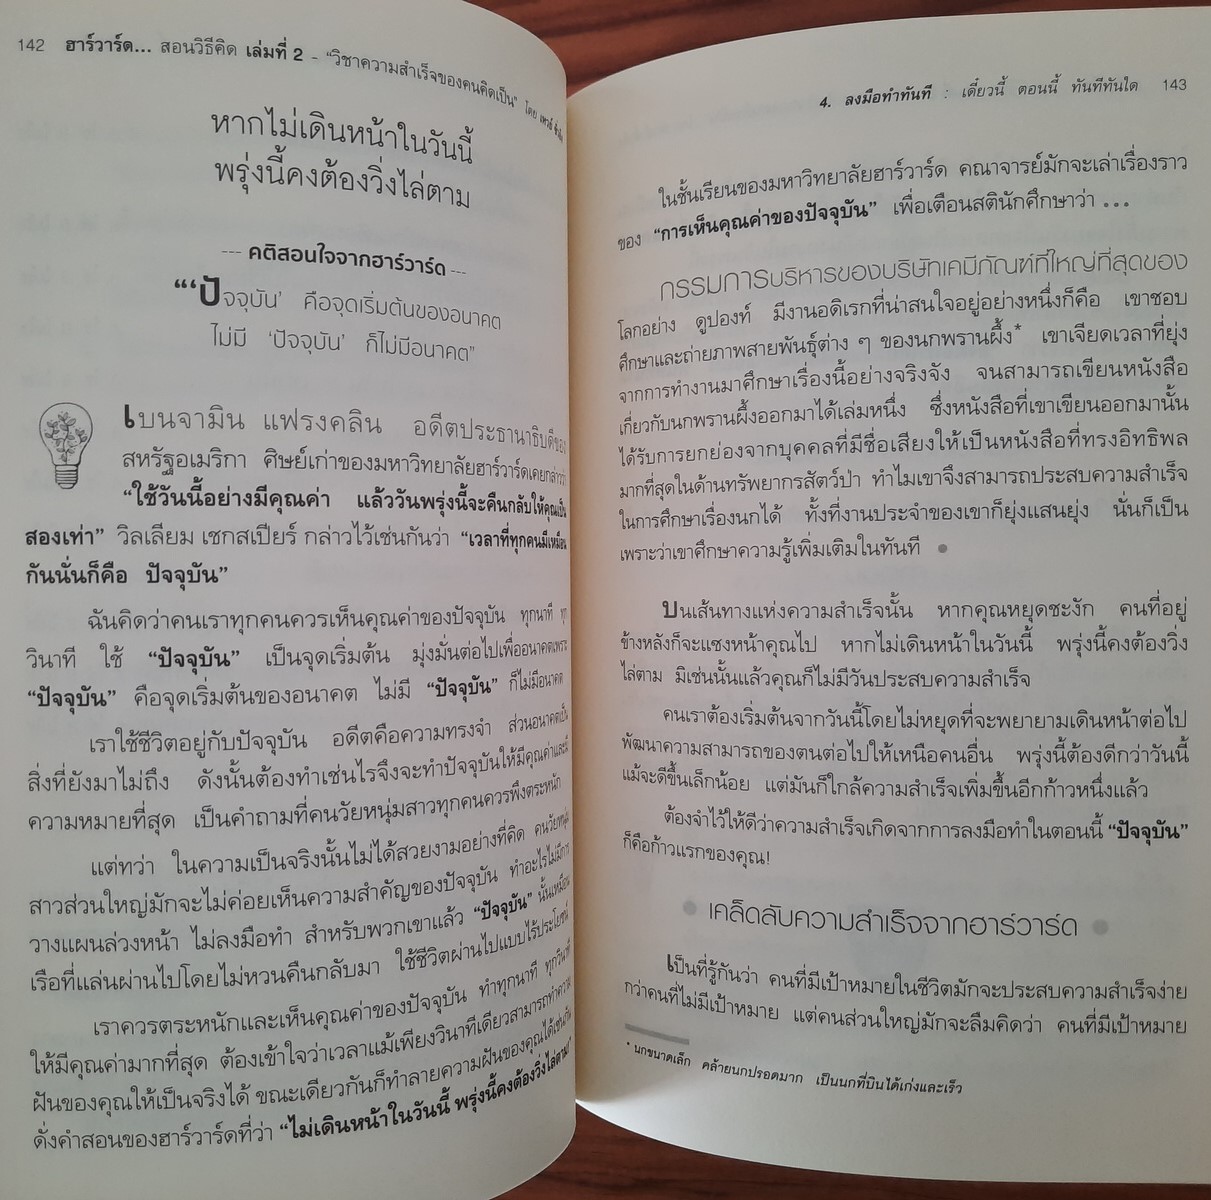 142 ฮาร์วาร์ด... สอนวิธีคิด เล่มที่ 2 - "วิชาความสำเร็จของคนคิดเป็น" โดย
หากไม่เดินหน้าในวันนี้
พรุ่งนี้คงต้องวิ่งไล่ตาม
--- คติสอนใจจากฮาร์วาร์ด ---
"'ปัจจุบัน' คือจุดเริ่มต้นของอนาคต
ไม่มี 'ปัจจุบัน' ก็ไม่มีอนาคต"
เบนจามิน แฟรงคลิน อดีตประธานาธิบดีของ
สหรัฐอเมริกา ศิษย์เก่าของมหาวิทยาลัยฮาร์วาร์ดเคยกล่าวว่า
"ใช้วันนี้อย่างมีคุณค่า แล้ววันพรุ่งนี้จะคืนกลับให้คุณเป็น
สองเท่า" วิลเลียม เชกสเปียร์ กล่าวไว้เช่นกันว่า "เวลาที่ทุกคนมีเหมือน
กันนั่นก็คือ ปัจจุบัน"
ฉันคิดว่าคนเราทุกคนควรเห็นคุณค่าของปัจจุบัน ทุกนาที ทุก
วินาที ใช้ "ปัจจุบัน" เป็นจุดเริ่มต้น มุ่งมั่นต่อไปเพื่ออนาคตเพราะ
"ปัจจุบัน" คือจุดเริ่มต้นของอนาคต ไม่มี "ปัจจุบัน" ก็ไม่มีอนาคต
เราใช้ชีวิตอยู่กับปัจจุบัน อดีตคือความทรงจำ ส่วนอนาคตเป็น
สิ่งที่ยังมาไม่ถึง ดังนั้นต้องทำเช่นไรจึงจะทำปัจจุบันให้มีคุณค่าและมี
ความหมายที่สุด เป็นคำถามที่คนวัยหนุ่มสาวทุกคนควรพึงตระหนัก
แต่ทว่า ในความเป็นจริงนั้นไม่ได้สวยงามอย่างที่คิด คนวัยหนุ่ม
สาวส่วนใหญ่มักจะไม่ค่อยเห็นความสำคัญของปัจจุบัน ทำอะไรไม่มีการ
วางแผนล่วงหน้า ไม่ลงมือทำ สำหรับพวกเขาแล้ว "ปัจจุบัน" นั้นเหมือน
เรือที่แล่นผ่านไปโดยไม่หวนคืนกลับมา ใช้ชีวิตผ่านไปแบบไร้ประโยชน์
เราควรตระหนักและเห็นคุณค่าของปัจจุบัน ทำทุกนาที ทุกวินาที
ให้มีคุณค่ามากที่สุด ต้องเข้าใจว่าเวลาแม้เพียงวินาทีเดียวสามารถทำความ
ฝันของคุณให้เป็นจริงได้ ขณะเดียวกันก็ทำลายความฝันของคุณได้เช่นกัน
ดั่งคำสอนของฮาร์วาร์ดที่ว่า "ไม่เดินหน้าในวันนี้ พรุ่งนี้คงต้องวิ่งไล่ตาม!"
4. ลงมือทำทันที : เดี๋ยวนี้ ตอนนี้ ทันทีทันใด 143
ในชั้นเรียนของมหาวิทยาลัยฮาร์วาร์ด คณาจารย์มักจะเล่าเรื่องราว
ของ "การเห็นคุณค่าของปัจจุบัน" เพื่อเตือนสตินักศึกษาว่า ...
กรรมการบริหารของบริษัทเคมีภัณฑ์ที่ใหญ่ที่สุดของ
โลกอย่าง ดูปองท์ มีงานอดิเรกที่น่าสนใจอยู่อย่างหนึ่งก็คือ เขาชอบ
ศึกษาและถ่ายภาพสายพันธุ์ต่าง ๆ ของนกพรานผึ้ง* เขาเจียดเวลาที่ยุ่ง
จากการทำงานมาศึกษาเรื่องนี้อย่างจริงจัง จนสามารถเขียนหนังสือ
เกี่ยวกับนกพรานผึ้งออกมาได้เล่มหนึ่ง ซึ่งหนังสือที่เขาเขียนออกมานั้น
ได้รับการยกย่องจากบุคคลที่มีชื่อเสียงให้เป็นหนังสือที่ทรงอิทธิพล
มากที่สุดในด้านทรัพยากรสัตว์ป่า ทำไมเขาจึงสามารถประสบความสำเร็จ
ในการศึกษาเรื่องนกได้ ทั้งที่งานประจำของเขาก็ยุ่งแสนยุ่ง นั่นก็เป็น
เพราะว่าเขาศึกษาความรู้เพิ่มเติมในทันที ●
บนเส้นทางแห่งความสำเร็จนั้น หากคุณหยุดชะงัก คนที่อยู่
ข้างหลังก็จะแซงหน้าคุณไป หากไม่เดินหน้าในวันนี้ พรุ่งนี้คงต้องวิ่ง
ไล่ตาม มิเช่นนั้นแล้วคุณก็ไม่มีวันประสบความสำเร็จ
คนเราต้องเริ่มต้นจากวันนี้โดยไม่หยุดที่จะพยายามเดินหน้าต่อไป
พัฒนาความสามารถของตนต่อไปให้เหนือคนอื่น พรุ่งนี้ต้องดีกว่าวันนี้
แม้จะดีขึ้นเล็กน้อย แต่มันก็ใกล้ความสำเร็จเพิ่มขึ้นอีกก้าวหนึ่งแล้ว
ต้องจำไว้ให้ดีว่าความสำเร็จเกิดจากการลงมือทำในตอนนี้ "ปัจจุบัน"
ก็คือก้าวแรกของคุณ!
● เคล็ดลับความสำเร็จจากฮาร์วาร์ด ●
เป็นที่รู้กันว่า คนที่มีเป้าหมายในชีวิตมักจะประสบความสำเร็จง่าย
กว่าคนที่ไม่มีเป้าหมาย แต่คนส่วนใหญ่มักจะลืมคิดว่า คนที่มีเป้าหมาย
* นกขนาดเล็ก คล้ายนกปรอดมาก เป็นนกที่บินได้เก่งและเร็ว